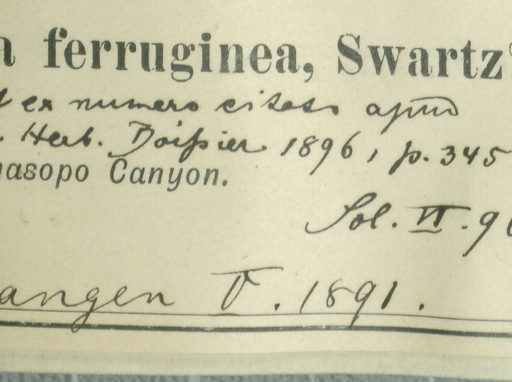 a ferruginea, Swartz
ex numero citato apud
. Herb. Boissier 1896, p. 345
nasopo Canyon.
Sol. VI. 96
angen V. 1891.